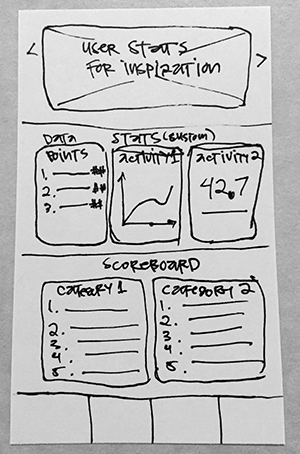 <
USER STATS
FOR INSPIRATION
>
DATA
POINTS
1. ##
2. ##
3. ##
STATS (CUSTOM)
ACTIVITY 1
ACTIVITY 2
42.7
SCOREBOARD
CATEGORY 1
1.
2.
3.
4.
5.
CATEGORY 2
1.
2.
3.
4.
5.